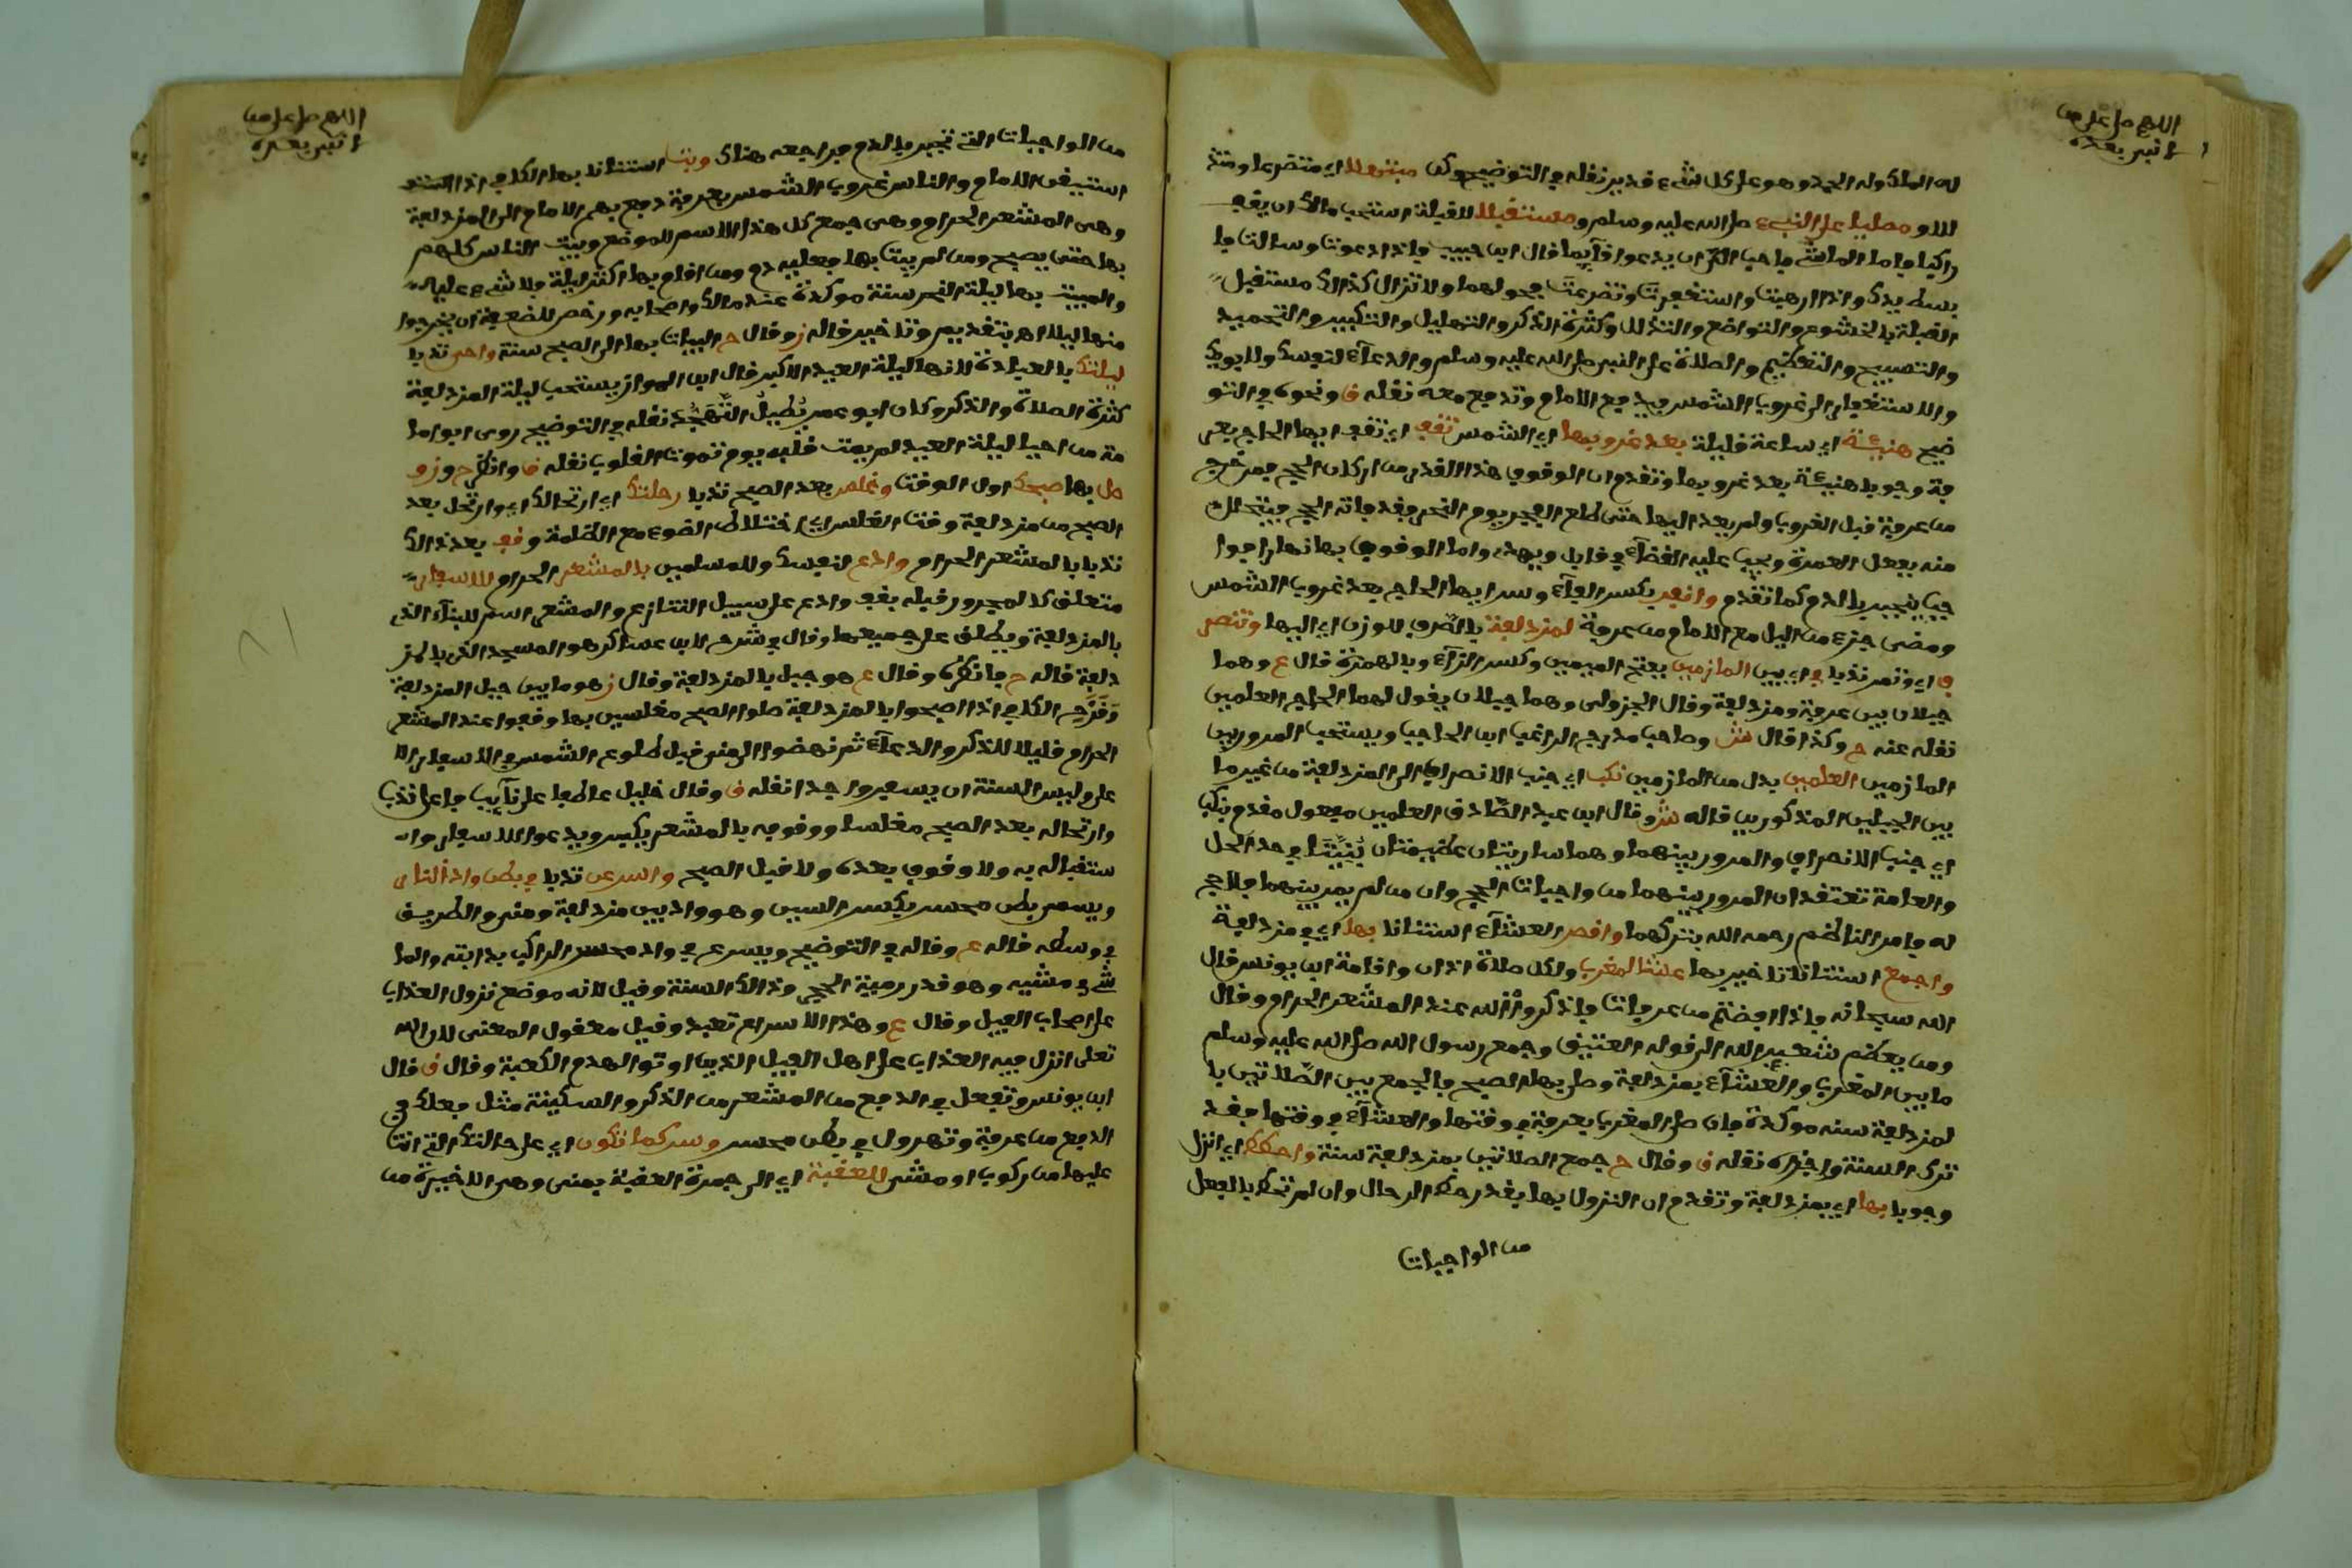 اللهم صل على من
لا نبي بعده
له الملك وله الحمد وهو على كل شيء قدير نقله في التوضيح وكن مبتهلا اي متضرعا ومتذ
للا ومصليا على النبيء صلى الله عليه وسلم ومستقبلا للقبلة استحب مالك ان يقف
راكبا واما الماشي فاحب الي ان يدعوا قآيما قال ابن حبيب واذا دعوت وسالت فا
بسط يدك واذا رهبت واستغفرت وتضرعت فحولهما ولا تزال كذالك مستقبل
القبلة بالخشوع والتواضع والتذلل وكثرة الذكر والتهليل والتكبير والتحميد
والتسبيح والتعظيم والصلاة على النبي صلى الله عليه وسلم والدعآء لنفسك ولابويك
والاستغفار الى غروب الشمس فيدفع الامام وتدفع معه نقله ق ونحوه في التو
ضيح هنيئة اي ساعة قليلة بعد غروبها اي الشمس تقف اي تقف ايها الحاج بعر
فة وجوبا هنيئة بعد غروبها وتقدم ان الوقوف هذا القدر من اركان الحج فمن خرج
من عرفة قبل الغروب ولم يعد اليها حتى طلع الفجر يوم النحر فقد فاته الحج فيتحلل
منه بفعل العمرة ويجب عليه القضآء في قابل ويهد واما الوقوف بها نهارا فوا
جب ينجبر بالدم كما تقدم وانفر بكسر الفآء وسر ايها الحاج بعد غروب الشمس
ومضى جزء من اليل مع الامام من عرفة لمزدلفة بالصرف للوزن اي اليها وتنصر
ف اي وتمر ندبا في اي بين المازمين بفتح الميمين وكسر الزآء وبالهمزة قال ع وهما
جبلان بين عرفة ومزدلفة وقال الجزولي وهما جبلان يقول لهما الحاج العلمين
نقله عنه ح وكذا قال ش وصاحب مدرج الراغب ابن الحاجب ويستحب المرور بين
المازمين العلمين بدل من المازمين نكب اي جنب الانصراف الى المزدلفة من غير ما
بين الجبلين المذكورين قاله ش وقال ابن عبد الصادق العلمين مفعول مقدم بنكب
اي جنب الانصراف والمرور بينهما وهما ساريتان عظيمتان بنيتا في حد الحل
والعامة تعتقد ان المرور بينهما من واجبات الحج وان من لم يمر بينهما فلا حج
له فامر الناظم رحمه الله بتركهما واقصر العشآء استنانا بها اي في مزدلفة
واجمع استنانا تاخير بها عشا لمغرب ولكل صلاة اذان واقامة ابن يونس قال
الله سبحانه فاذا افضتم من عرفات فاذكروا الله عند المشعر الحرام وقال
ومن يعظم شعير الله الى قوله العتيق وجمع رسول الله صلى الله عليه وسلم
ما بين المغرب والعشآء بمزدلفة وصلى بها الصبح فالجمع بين الصلاتين با
لمزدلفة سنة موكدة فان صلى المغرب بعرفة في وقتها والعشآء في وقتها فقد
ترك السنة واجزاه نقله ق وقال ح جمع الصلاتين بمزدلفة سنة واحطط اي انزل
وجوبا بها اي بمزدلفة وتقدم ان النزول بها بقدر حط الرحال وان لم تحط بالفعل
من الواجبات
اللهم صل على من
لا نبي بعده
من الواجبات التي تنجبر بالدم فراجعه هناك وبت استنانا بها الكافي اذا
استيقن الامام والناس غروب الشمس بعرفة دفع بهم الامام الى المزدلفة
وهي المشعر الحرام وهي جمع كل هذا الاسم للموضع ويبيت الناس كلهم
بها حتى يصبح ومن لم يبت بها فعليه دم ومن اقام بها اكثر ليلة فلا شيء عليه
والمبيت بها ليلة النحر سنة موكدة عند مالك واصحابه ورخص للضعفة ان يخرجوا
منها ليلا اهـ بتقديم وتاخير قاله ز وقال ح البيات بها الى الصبح سنة واحي ندبا
ليلتك بالعبادة لانها ليلة العيد الاكبر قال ابن المواز يستحب ليلة المزدلفة
كثرة الصلاة والذكر وكان ابو عمر يطيل التهجد نقله في التوضيح روى ابو اما
مة من احيا ليلة العيد لم يمت قلبه يوم تموت القلوب نقله ق وانظر ح وز و
صل بها صبحك اول الوقت وغلس بعد الصبح ندبا رحلتك اي ارتحالك اي وارتحل بعد
الصبح من مزدلفة وقت الغلس اي اختلاط الضوء مع الظلمة وقف بعد ذالك
ندبا بالمشعر الحرام وادع لنفسك وللمسلمين بالمشعر الحرام للاسفار
متعلق كالمجرور قبله بقف وادع على سبيل التنازع والمشعر اسم للبنآء الذي
بالمزدلفة ويطلق على جميعها وقال في شرح لابن عساكر هو المسجد الذي بالمز
دلفة قاله ح فانظره وقال ع هو جبل بالمزدلفة وقال ز هو ما بين جبل المزدلفة
وقزح الكافي اذا اصبحوا بالمزدلفة صلوا الصبح مغلسين بها وقفوا عند المشعر
الحرام قليلا للذكر والدعآء ثم نهضوا الى منى قبل طلوع الشمس في الاسفار الا
على وليس السنة ان يسفروا جدا نقله ق وقال خليل عاطفا على نآيب فاعل ندب
وارتحاله بعد الصبح مغلسا ووقوفه بالمشعر يكبر ويدعوا للاسفار وا
ستقباله به ولا وقوف بعده ولا قبل الصبح واسرعن ندبا في بطن واد النار
ويسمى بطن محسر بكسر السين وهو واد بين مزدلفة ومنى والطريق
في وسطه قاله ع وقاله في التوضيح ويسرع في واد محسر الراكب بدابته والما
شي في مشيه وهو قدر رمية الحجر وذالك السنة وقيل لانه موضع نزول العذاب
على اصحاب الفيل وقال ع وهذا الاسراع تعبد وقيل معقول المعنى لان الله
تعلى انزل فيه العذاب على اهل الفيل الذين اوتوا لهدم الكعبة وقال ق قال
ابن يونس وتفعل في الدفع من المشعر من الذكر والسكينة مثل فعلك في
الدفع من عرفة وتهرول في بطن محسر وسر كما تكون اي على حالتك التي انت
عليها من ركوب او مشي للعقبة اي الى جمرة العقبة بمنى وهي الاخيرة من